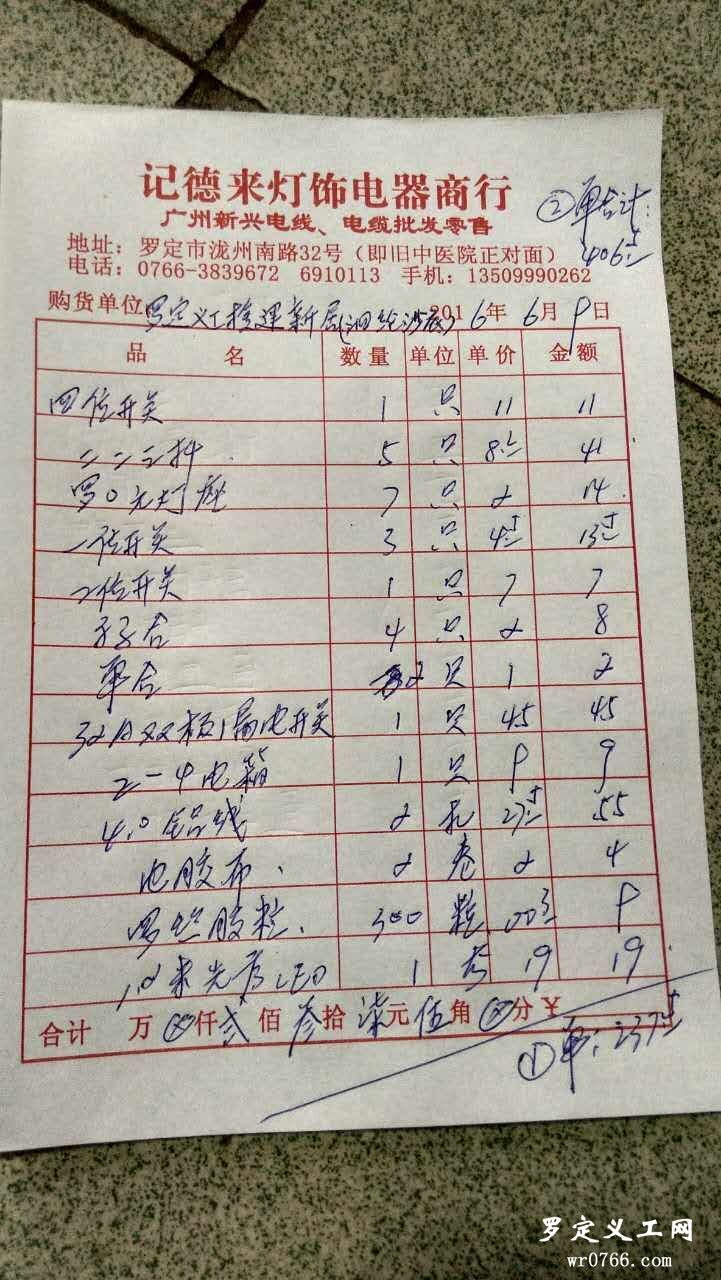 记德来灯饰电器商行
广州新兴电线、电缆批发零售
②单合计:
406.5
地址:罗定市泷州南路32号(即旧中医院正对面)
电话:0766-3839672 6910113 手机:13509990262
购货单位 罗定义工 2016年6月9日
品名 数量 单位 单价 金额
四位开关 1 只 11 11
二二三插 5 只 8.2 41
罗口元灯座 7 只 2 14
一位开关 3 只 4.5 13.5
二位开关 1 只 7 7
4 只 2 8
单合 2 只 1 2
32A 漏电开关 1 只 45 45
2-4电箱 1 只 9 9
4.0铝线 2 扎 27.5 55
电胶布 2 卷 2 4
罗丝胶粒 300 粒 0.03 9
LED 1 19 19
合计 万⊗仟贰佰叁拾柒元伍角⊗分¥
①单:237.5
罗定义工网
wr0766.com